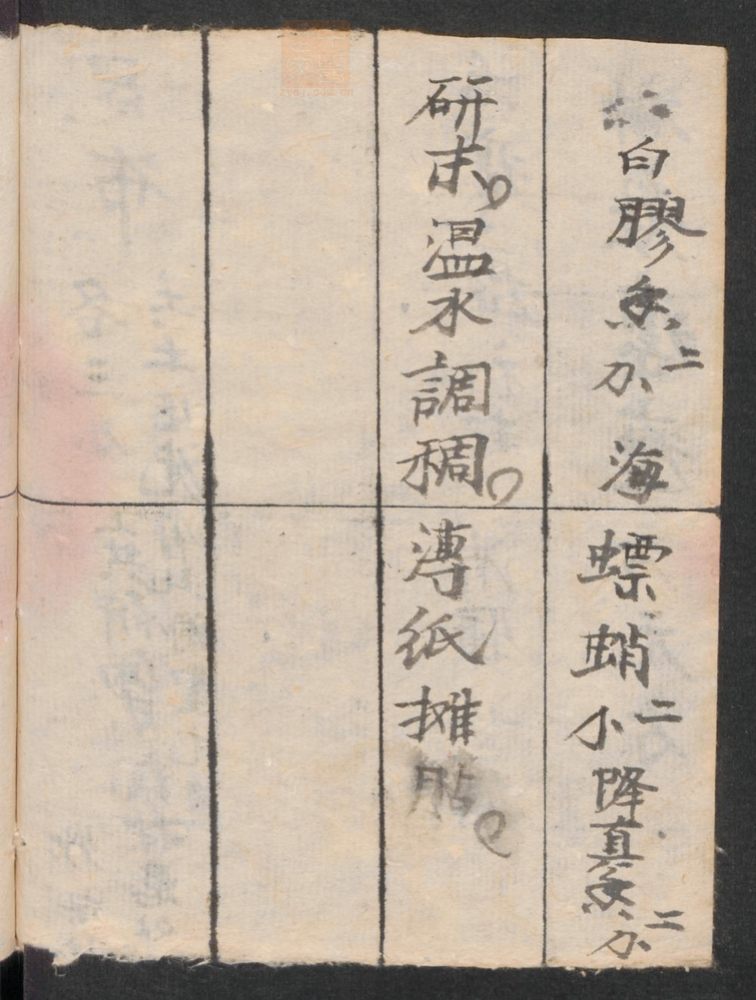 白膠香二分海螵蛸二小降真香二分
研末。温水調稠。薄紙攤貼。